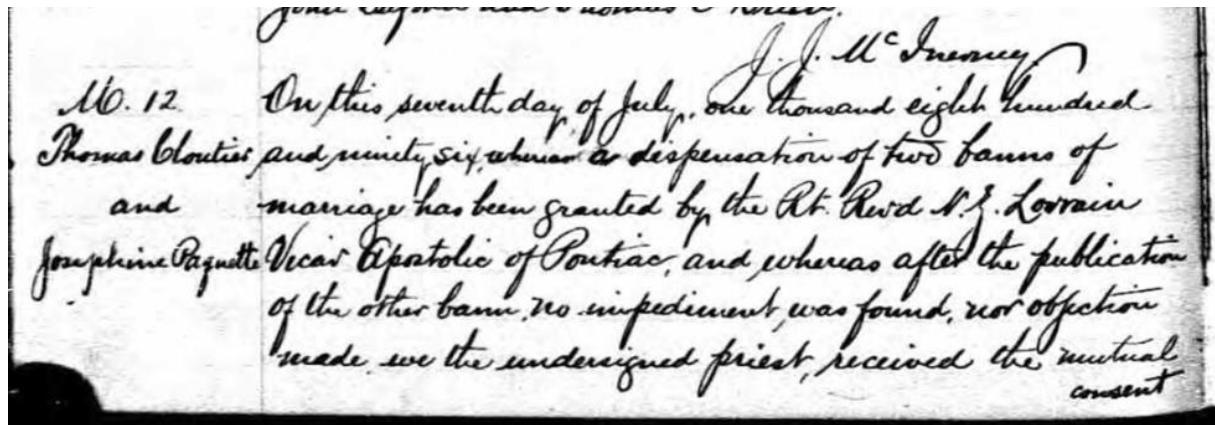 John and Thomas
J. J. McInerney
M. 12
Thomas Cloutier
and
Josephine Paquette
On this seventh day of July, one thousand eight hundred
and ninety six, whereas a dispensation of two banns of
marriage has been granted by the Rt. Revd N. Z. Lorrain
Vicar Apostolic of Pontiac, and whereas after the publication
of the other bann, no impediment, was found, nor objection
made, we the undersigned priest, received the mutual
consent